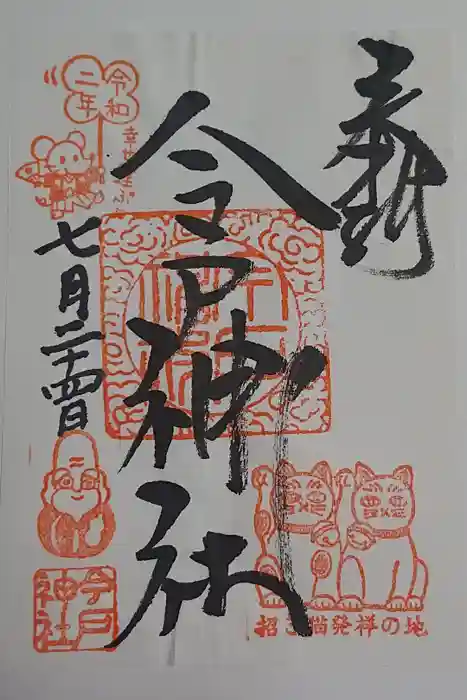 奉拝
今戸神社
招き猫発祥の地
令和
二年
七月二十四日
今戸
神社